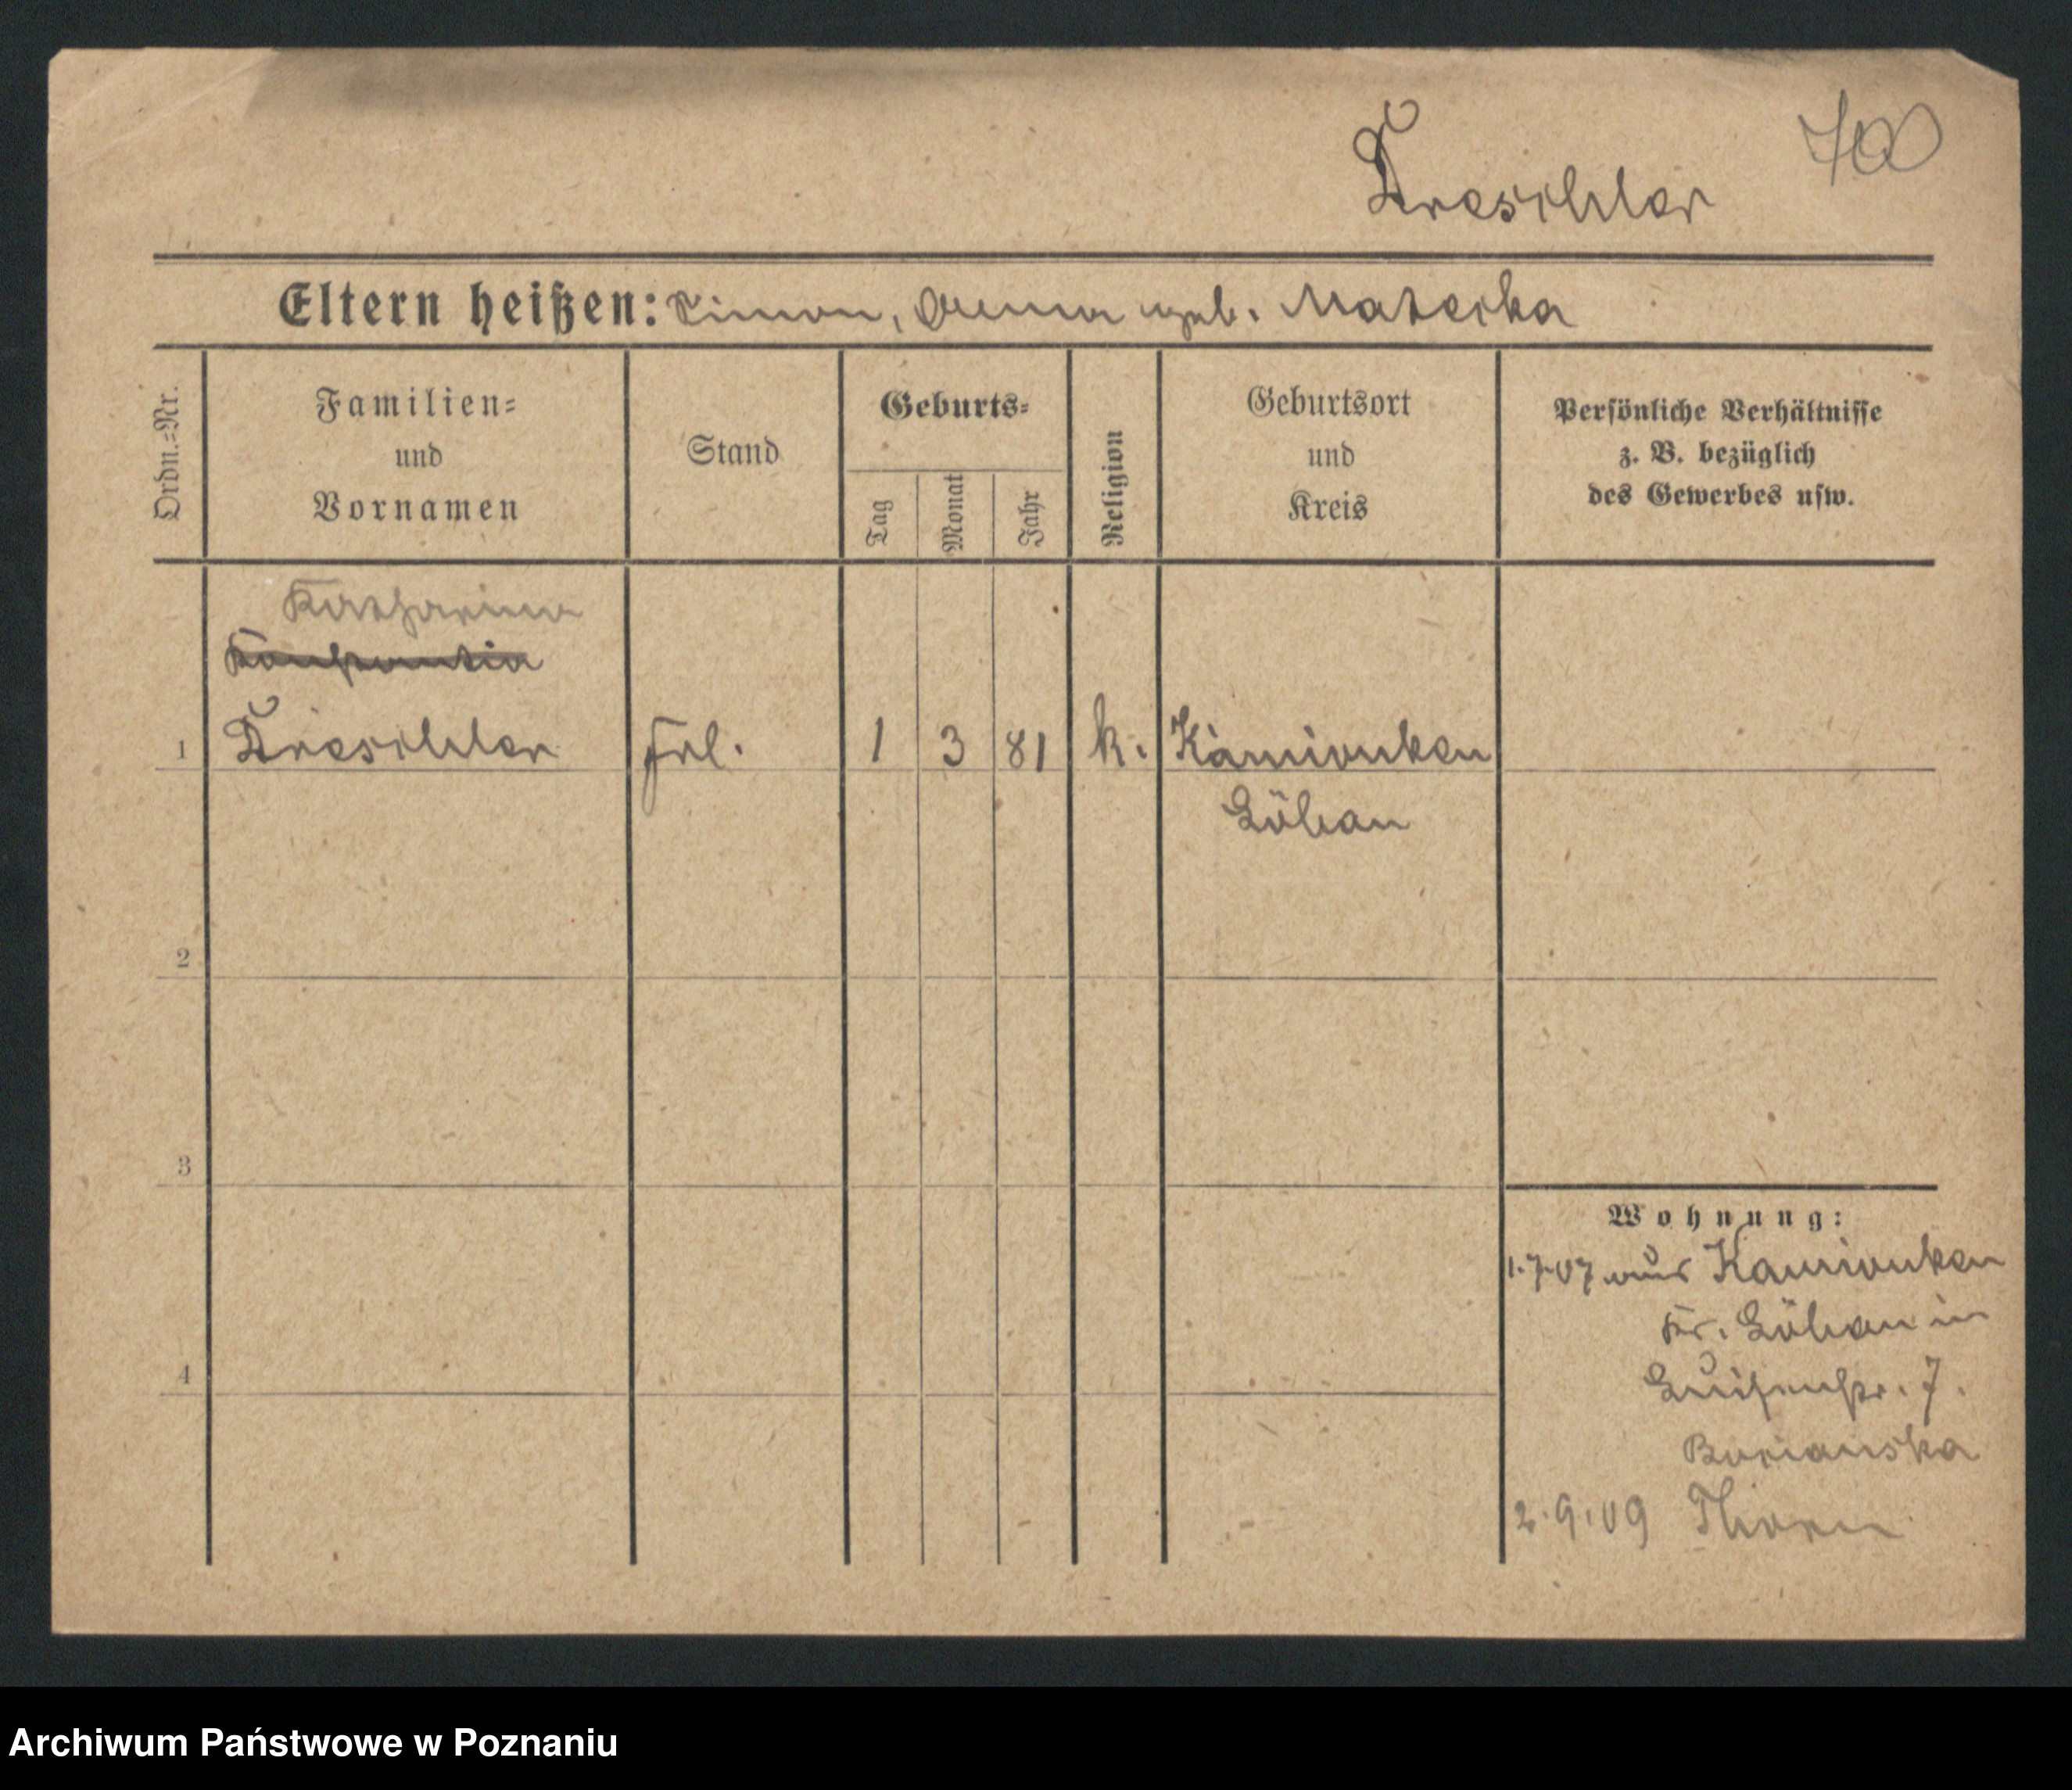 700
Dreschler
Eltern heißen: Simon, Anna geb. Matecka
Ordn.=Nr.
Familien=
und
Vornamen
Stand
Geburts=
Tag
Monat
Jahr
Religion
Geburtsort
und
Kreis
Persönliche Verhältnisse
z. B. bezüglich
des Gewerbes usw.
Katharina
Konstantia
1 Dreschler Frl. 1 3 81 k. Kamionken
Löbau
2
3
4
Wohnung:
1.7.07 aus Kamionken
Kr. Löbau in
Luisenstr. 7.
2.9.09 Thorn
Archiwum Państwowe w Poznaniu